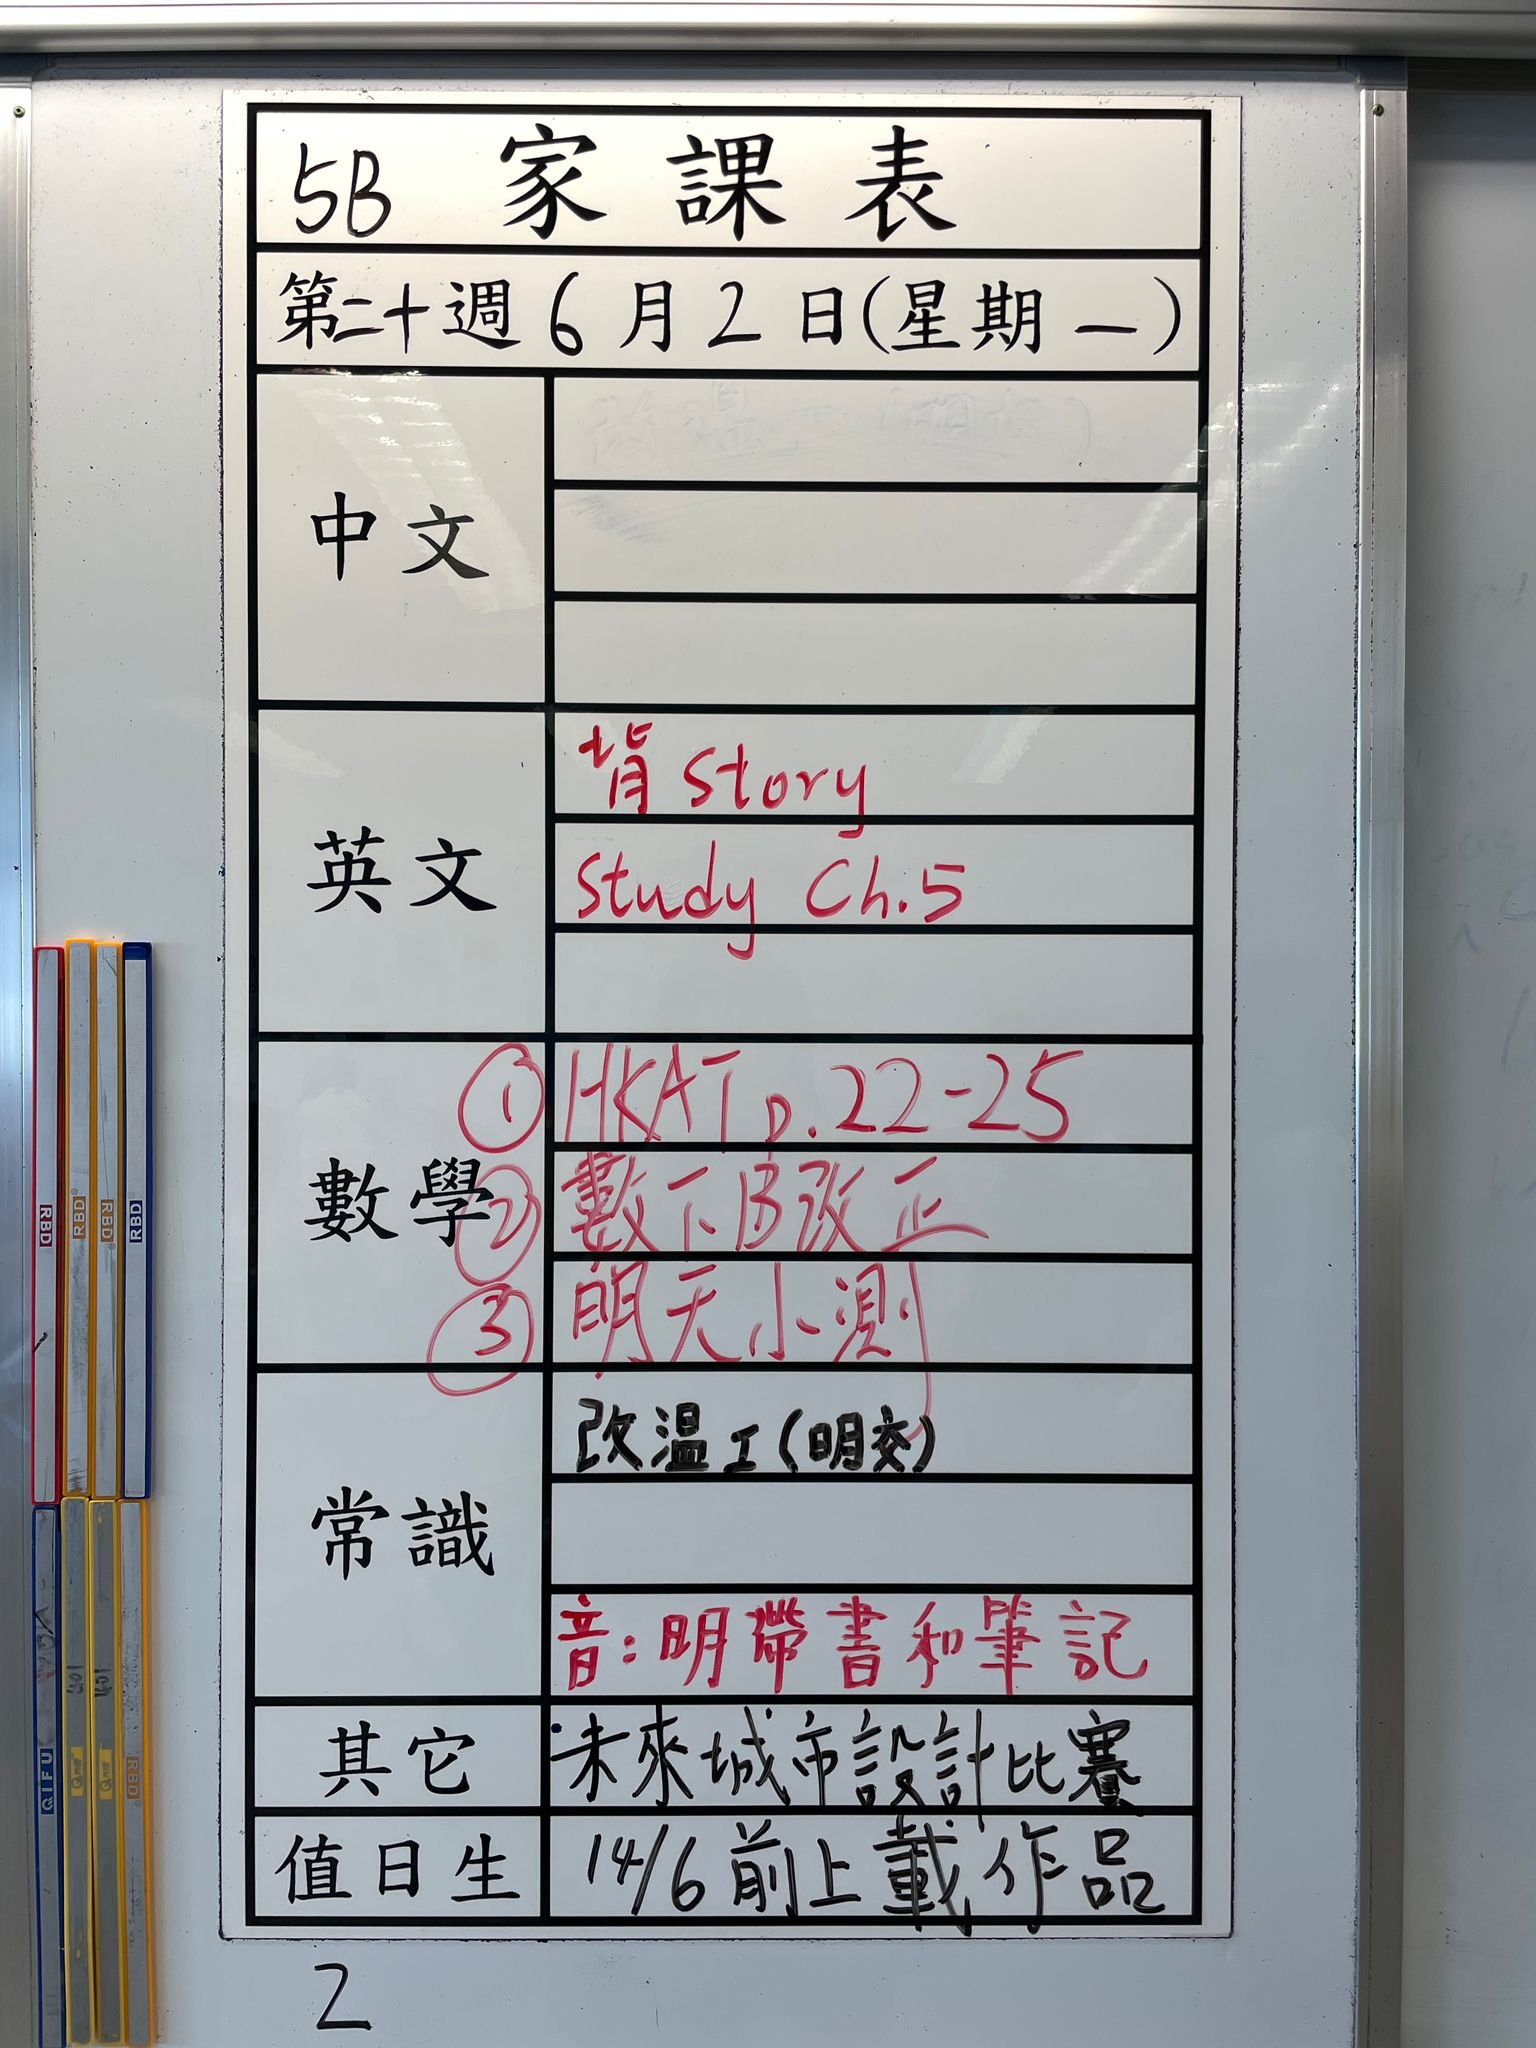 5B 家課表
第二十週6月2日(星期一)
中文
英文
背story
study Ch.5
數學
① HKAT p.22-25
② 數下B改正
③ 明天小測
常識
改溫工(明交)
音:明帶書和筆記
其它
未來城市設計比賽
值日生
14/6前上載作品
2
RBD
RBD
RBD
RBD
QIFU
RBD